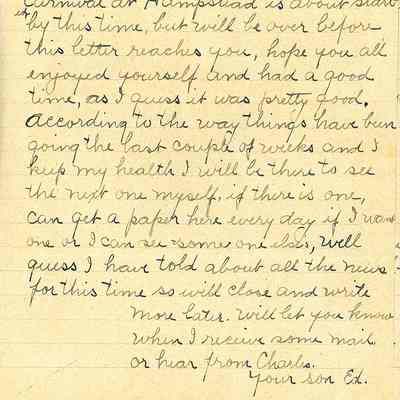 Carnival at Hampstead is about start
by this time, but will be over before
this letter reaches you, hope you all
enjoyed yourself and had a good
time, as I guess it was pretty good.
According to the way things have been
going the last couple of weeks and I
keep my health I will be there to see
the next one myself, if there is one,
can get a paper here every day if I want
one or I can see some one elses, Well
guess I have told about all the news
for this time so will close and write
more later. Will let you know
when I receive some mail
or hear from Charles.
Your son Ed.